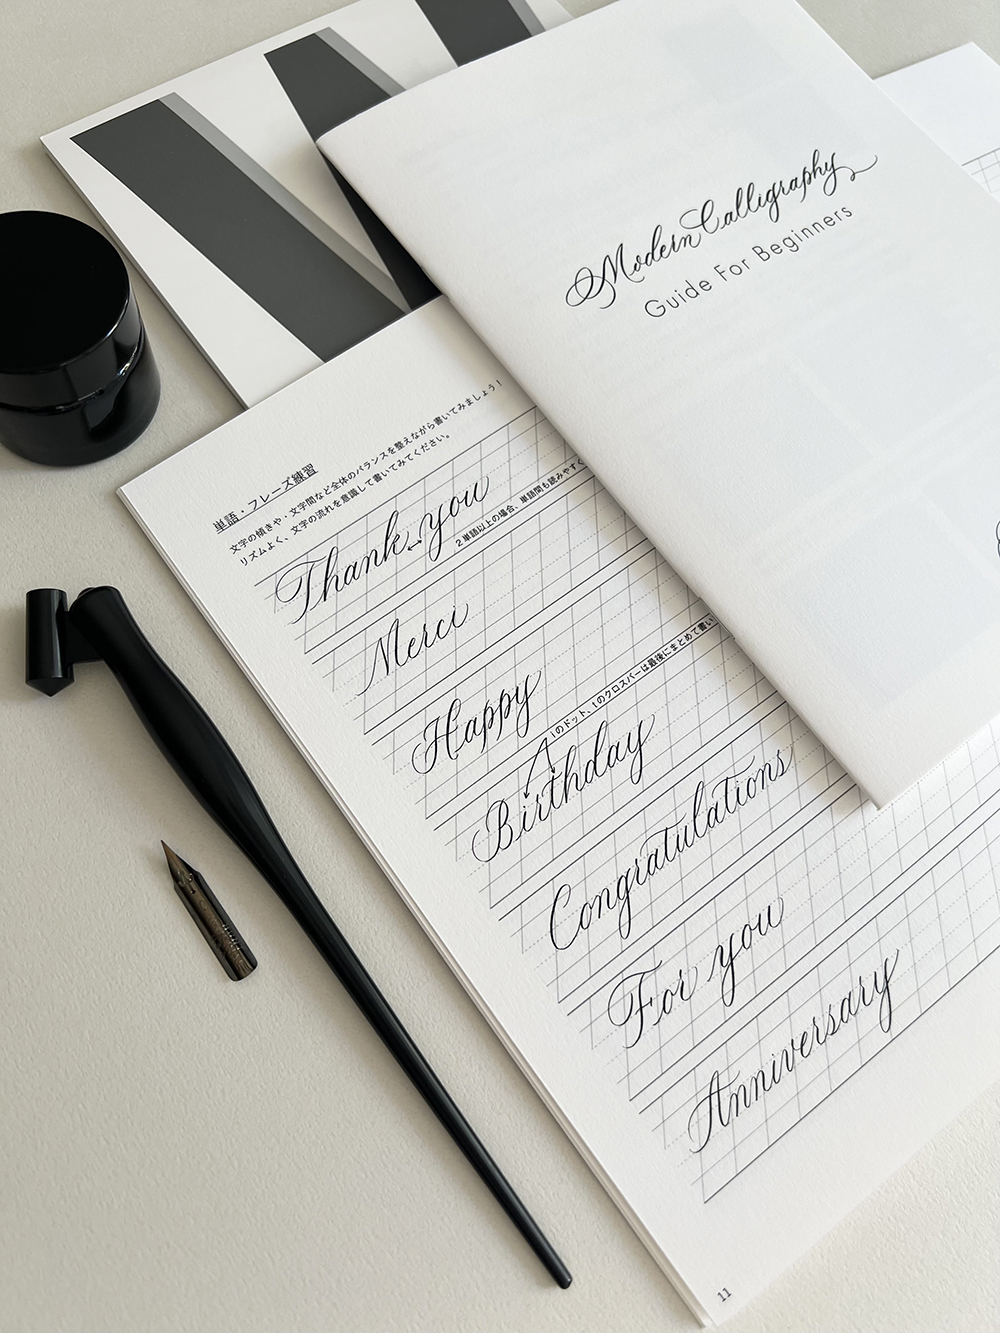 Modern Calligraphy
Guide For Beginners
単語・フレーズ練習
文字の傾きや・文字間など全体のバランスを整えながら書いてみましょう！
リズムよく、文字の流れを意識して書いてみてください。
Thank you
2単語以上の場合、単語間も読みやすく
Merci
Happy
iのドット、tのクロスバーは最後にまとめて書い
Birthday
Congratulations
For you
Anniversary
11